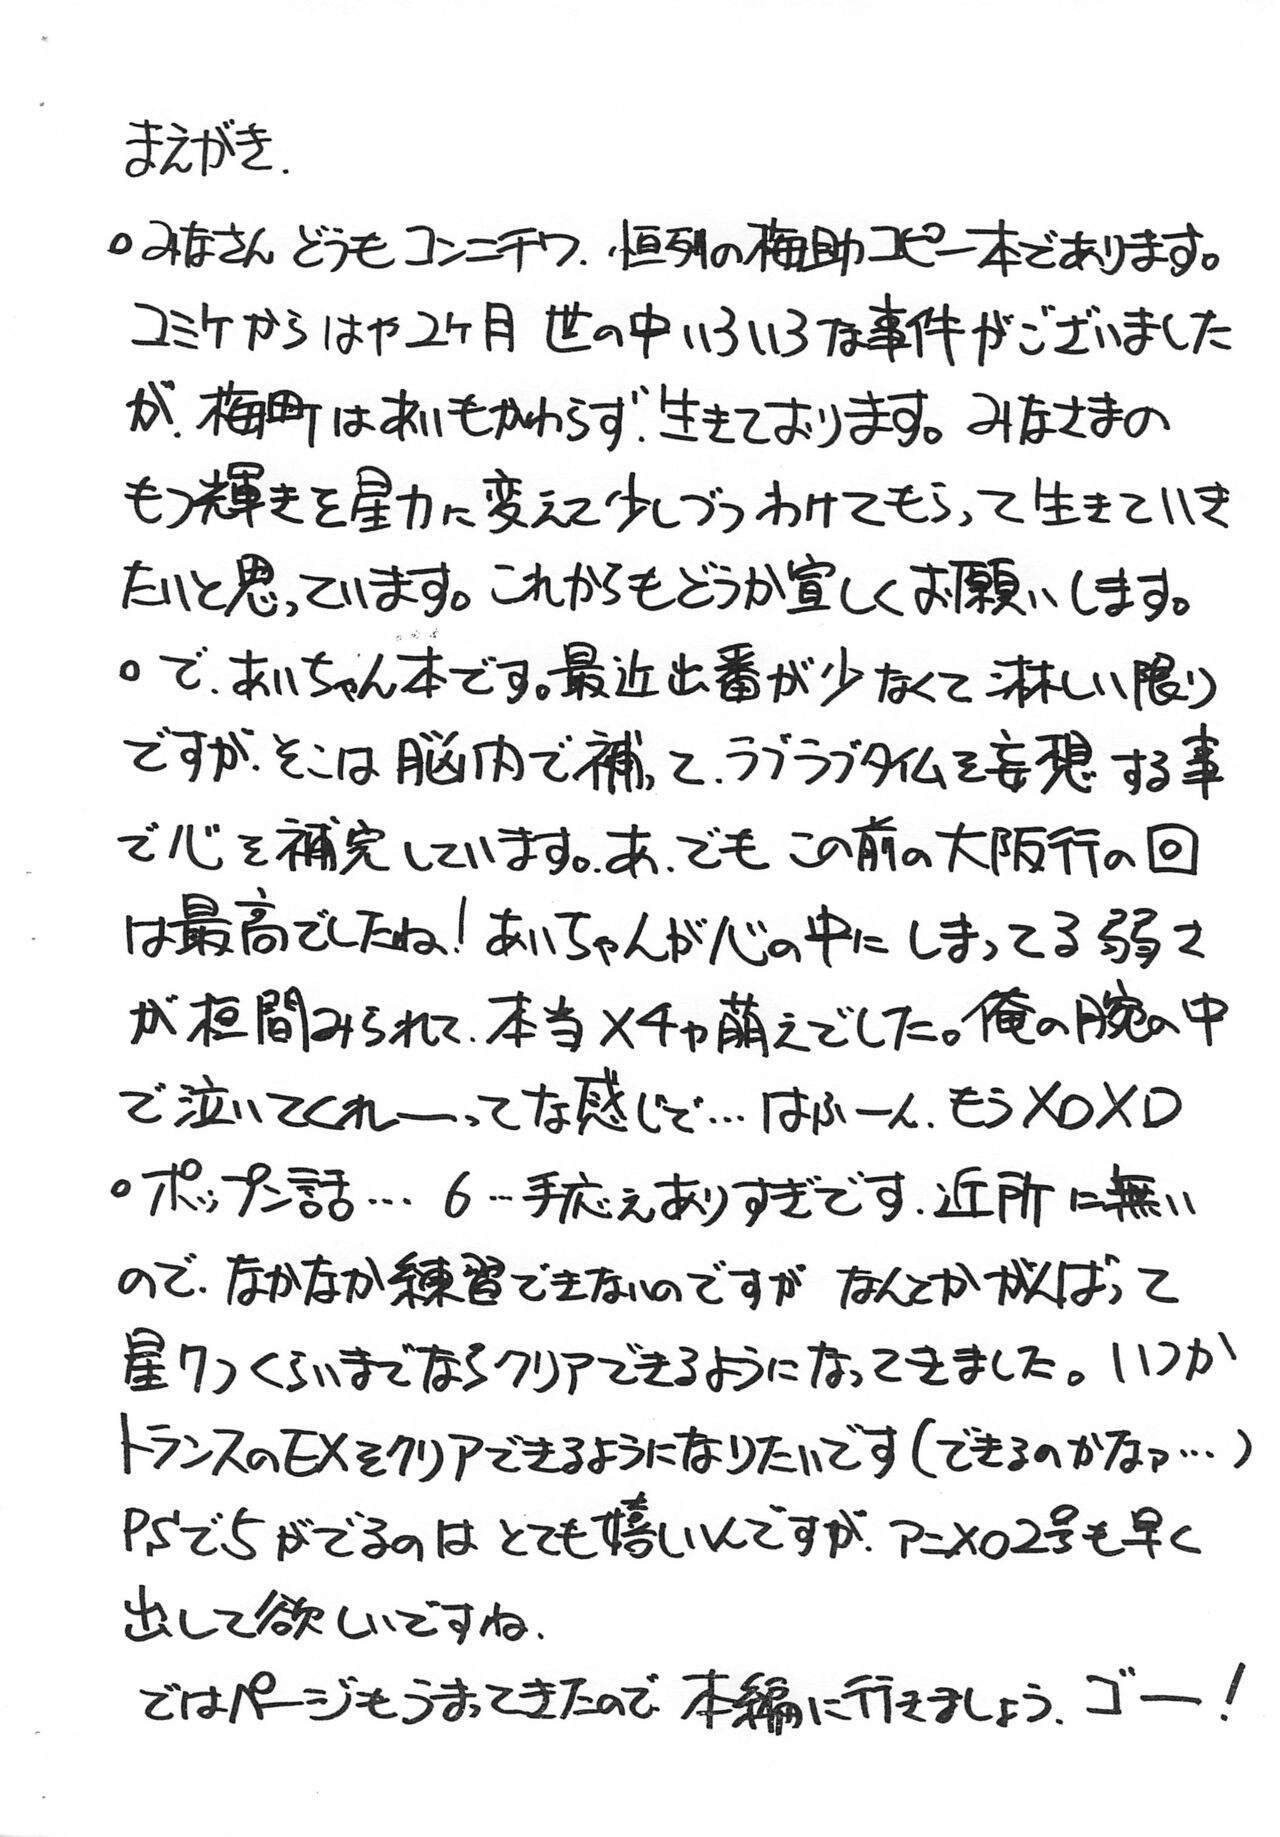 まえがき.
○みなさん どうもコンニチワ. 恒列の梅助コピー本であります。
コミケからはや2ヶ月 世の中いろいろな事件がございました
が. 梅町はあいもかわらず. 生きております。みなさまの
もつ輝きを星力に変えて少しづつわけてもらって生きていき
たいと思っています。これからもどうか宜しくお願いします。
○で. あいちゃん本です。最近出番が少なくて淋しい限り
ですが. そこは脳内で補って. ラブラブタイムを妄想する事
で心を補完しています。あ. でもこの前の大阪行の回
は最高でしたね! あいちゃんが心の中にしまってる弱さ
が垣間みられて. 本当メチャ萌えでした。俺の腕の中
で泣いてくれーってな感じで… はふーん. もうメロメロ
○ポップン話… 6…手応えありすぎです. 近所に無い
ので. なかなか練習できないのですが なんとかがんばって
星7つくらいまでならクリアできるようになってきました。いつか
トランスのEXをクリアできるようになりたいです(できるのかなァ…)
PSで5がでるのはとても嬉しいんですが. アニメロ2号も早く
出して欲しいですね.
ではページもうまってきたので 本編に行きましょう. ゴー!